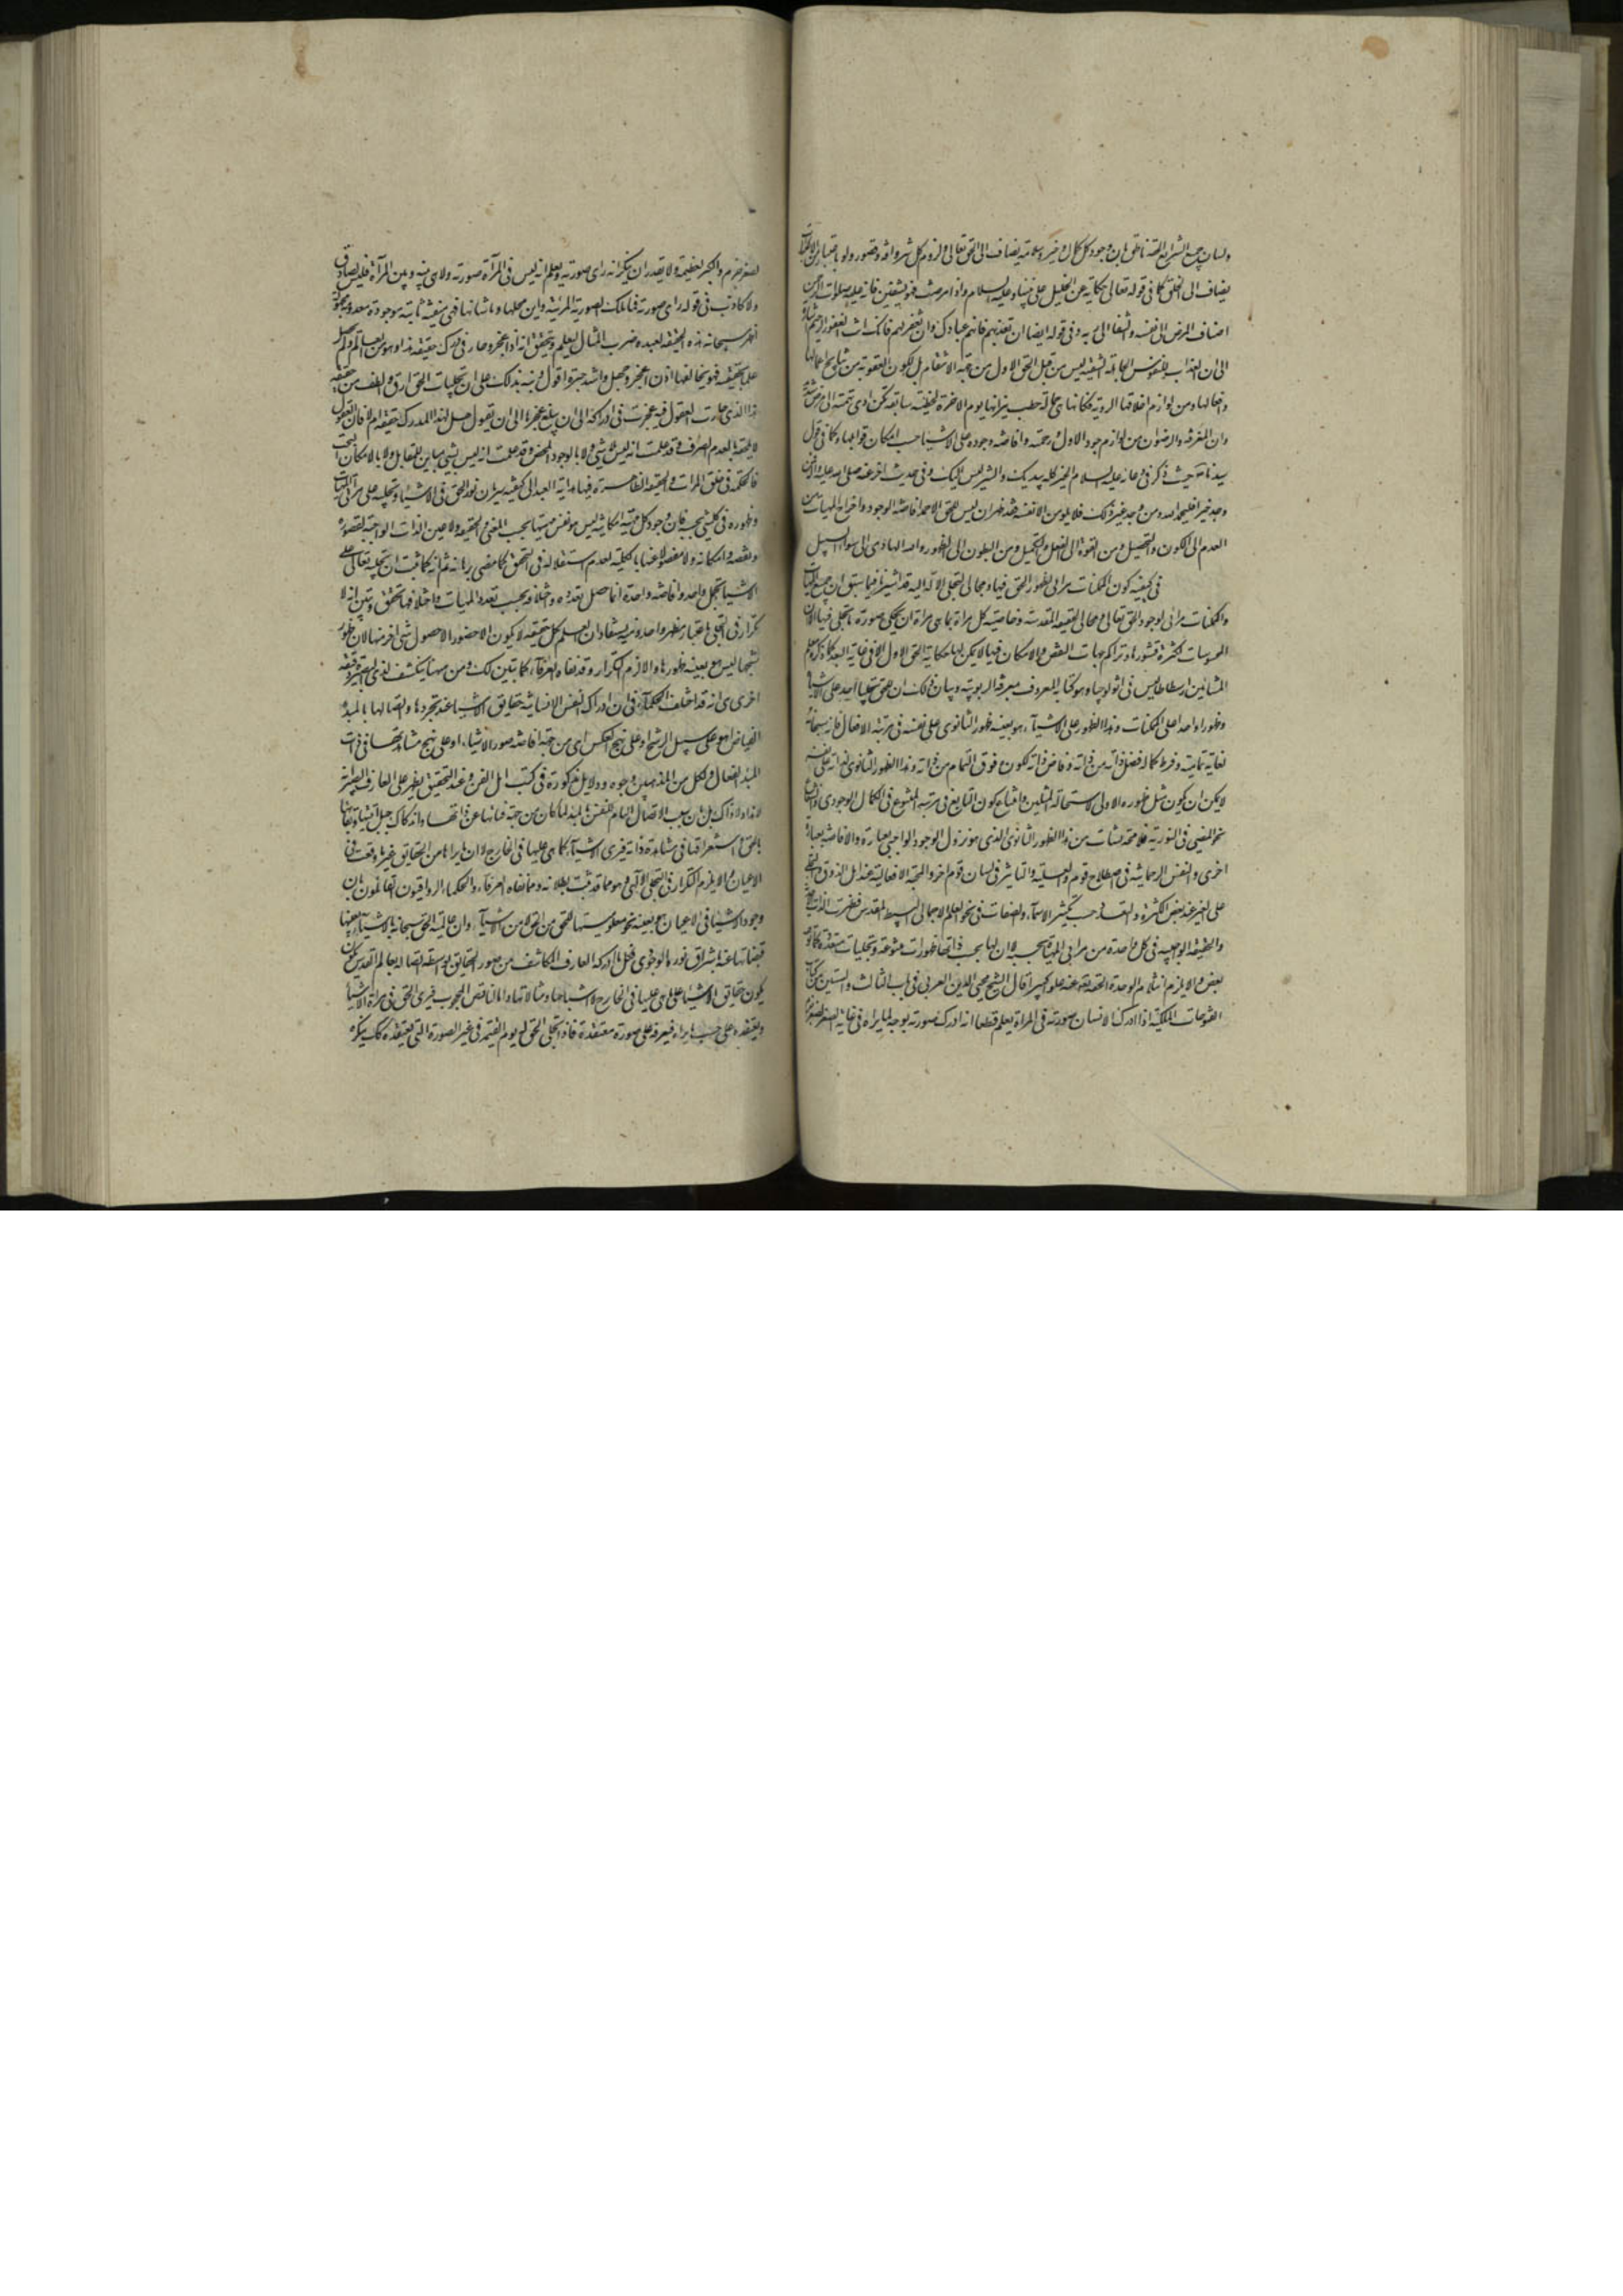 ولسان جميع الشرايع الحقة ناطق بان وجود كل كمال وخير وسلامة يضاف الى الحق تعالى ولزوم كل شر وافة وقصور ولو باعتبار من الاعتبارات
يضاف الى الخلق كما في قوله تعالى حكاية عن الخليل على نبينا وعليه السلام واذا مرضت فهو يشفين فانه عليه صلوات الرحمن
اضاف المرض الى نفسه والشفا الى ربه وفي قوله ايضا ان تعذبهم فانهم عبادك وان تغفر لهم فانك انت الغفور الرحيم اشارة
الى ان العذاب للنفوس الجاهلة الشقية ليس من قبل الحق الاول من جهة الانتقام بل لكون العقوبة من نتايج اعمالها
وافعالها ومن لوازم اخلاقها الردية فكانها هي حمالة حطب نيرانها يوم الاخرة لخطيئة سابقة كمن ادى نهمته الى مرض شديد
وان المغفرة والرضوان من لوازم جود الاول ورحمته وافاضة وجوده على الاشياء حسب امكان قوابلها وكما في قول
سيدنا حيث ذكر في دعائه عليه السلام الخير كله بيديك والشر ليس اليك وفي حديث اخر عنه صلى الله عليه واله فمن
وجد خيرا فليحمد الله ومن وجد غير ذلك فلا يلومن الا نفسه فقد ظهر ان ليس للحق الا حمد افاضة الوجود واخراج المهيات من
العدم الى الكون والتحصيل ومن القوة الى الفعل والتكميل ومن البطون الى الظهور والله الهادي الى سواء السبيل
في كيفية كون الممكنات مرائي لظهور الحق فيها ومجالي لتجلي الاله عليها قد اشرنا فيما سبق ان جميع المهيات
والممكنات مرائي لوجود الحق تعالى ومجالي لحقيقته المقدسة وخاصية كل مراة بما هي مراة ان تحكي صورة ما تجلى فيها الا ان
المحسوسات لكثرة قشورها وتراكم جهات النقص والامكان فيها لا يمكن لها حكاية الحق الاول الا في غاية البعد كما ذكره معلم
المشائين ارسطاطاليس في اثولوجيا وهو كتابه المعروف بمعرفة الربوبية وبيان ذلك ان للحق تجليا واحدا على الاشياء
وظهورا واحدا على الممكنات وهذا الظهور على الاشياء هو بعينه ظهوره الثانوي على نفسه في مرتبة الافعال فانه سبحانه
لغاية تماميته وفرط كماله فضل ذاته من ذاته وفاض ذاته لكونه فوق التمام من ذاته وهذا الظهور الثانوي لذاته على نفسه
لا يمكن ان يكون مثل ظهوره الاولي لاستحالة المثلين وامتناع كون التابع في مرتبة المتبوع في الكمال الوجودي
نحو المضيئ في النورية فلا محالة نشات من هذا الظهور الثانوي الذي هو نزول الوجود الواجبي بعبارة والافاضة بعبارة
اخرى والنفس الرحمانية في اصطلاح قوم والعلية والتاثير في لسان قوم اخر والمحبة الافعالية عند اهل الذوق والتجلي
على الغير عند بعض الكثرة والتعدد حسب تكثر الاسماء والصفات في نحو العلم الاجمالي البسيط المقدس فظهرت الذات
والحقيقة الواجبية في كل واحدة من مرائي المهيات بحسبه لا ان لها بحسب ذاتها ظهورات متنوعة وتجليات متعددة كما توهمه
بعض والا يلزم انثلام الوحدة الحقة تعالى عنه علوا كبيرا قال الشيخ محيي الدين العربي في باب الثالث والستين من كتاب
الفتوحات المكية اذا ادرك الانسان صورته في المراة يعلم قطعا انه ادرك صورته بوجه لما يراه في غاية الصغر لصغر جرم
لصغر الجرم والكبر لعظمه ولا يقدر ان ينكر انه راى صورته ويعلم انه ليس في المرآة صورته ولا هي بينه وبين المرآة فليس بصادق
ولا كاذب في قوله راى صورته فما تلك الصورة المرئية واين محلها وما شانها فهي منفية ثابتة موجودة معدومة
اظهر سبحانه هذه الحقيقة لعبده ضرب المثال ليعلم ويتحقق انه اذا عجز وحار في درك حقيقة هذا وهو من العالم ولم يحصل
علما بحقيقته فهو بخالقها اذن اعجز واجهل واشد حيرة اقول ونبه بذلك على ان تجليات الحق ارق والطف من حقيقة
هذا الذي حارت العقول فيه وعجزت في ادراكه الى ان بلغ عجزها الى ان تقول هل لهذا المدرك حقيقة ام لا فان العقول
لا تلحقه بالعدم الصرف وقد علمت انه ليس لا شيئ ولا بالوجود المحض وقد علمت انه ليس بشيئ مباين للمقابل ولا بالامكان البحت
فالحكمة في خلق المرات والحقيقة الظاهرة فيها هداية العبد الى كيفية سريان نور الحق في الاشياء وتجليه على مرائي المهيات
وظهوره في كل شيئ بحسبه فان وجود كل مهية امكانية ليس هو نفس مهيتها بحسب المعنى والحقيقة ولا عين الذات الواجبة لقصوره
ونقصه وامكانه ولا مفصولا عنها بالكلية لعدم استقلاله في التحقق كما مضى برهانه ثم انه كما ثبت ان تجليه تعالى على
الاشياء تجل واحد وافاضة واحدة انما حصل تعدده واختلافه بحسب تعدد المهيات واختلافها تحقق وتبين انه لا
تكرار في التجلي باعتبار مظهر واحد ومنه يستفاد ان العلم بكل حقيقة لا يكون الا حضورا لا حصول شيئ اخر منها لان ظهور
شبحها ليس هو بعينه ظهورها والا لزم التكرار وقد نفاه العرفاء كما تبين لك ومن ههنا ينكشف لذي البصيرة دقيقة
اخرى هي انه قد اختلف الحكماء في ان ادراك النفس الانسانية حقايق الاشياء عند تجردها واتصالها بالمبدء
الفياض اهو على سبيل الرشح او على نهج العكس اي من جهة افاضة صور الاشياء او على نهج مشاهدتها في ذات
المبدء الفعال ولكل من المذهبين وجوه ودلايل مذكورة في كتب اهل الفن وعند التحقيق يظهر على العارف البصير انه
لا هذا ولا ذاك بل ان سبب الاتصال التام للنفس بالمبدء لما كان من جهة فنائها عن ذاتها واندكاك جبل انيتها وبقائها
بالحق واستغراقها في مشاهدة ذاته فيرى الاشياء كما هي عليها في الخارج لا ان ما يراها من الحقايق غير ما وقعت في
الاعيان والا يلزم التكرار في التجلي الالهي وهو مما قد ثبت بطلانه ومما نفاه العرفاء والحكماء الرواقيون القائلون بان
وجود الاشياء في الاعيان هو بعينه نحو معلوميتها للحق من الحق لا من الاشياء وان عالمية الحق سبحانه بالاشياء بعينها
فيضانها عنه باشراق نوره الوجودي فكل ما ادركه العارف المكاشف من صور الحقايق بواسطة اتصاله بعالم القدس يكون
يكون حقايق الاشياء على ما هي عليها في الخارج لا اشباحها ومثالاتها واما الناقص المحجوب فيرى الحق في مراة الاشياء
ويعتقده على حسب ما يراه فيعرفه على صورة معتقدة فاذا تجلى الحق له يوم القيمة في غير الصورة التي يعتقده كذلك ينكره